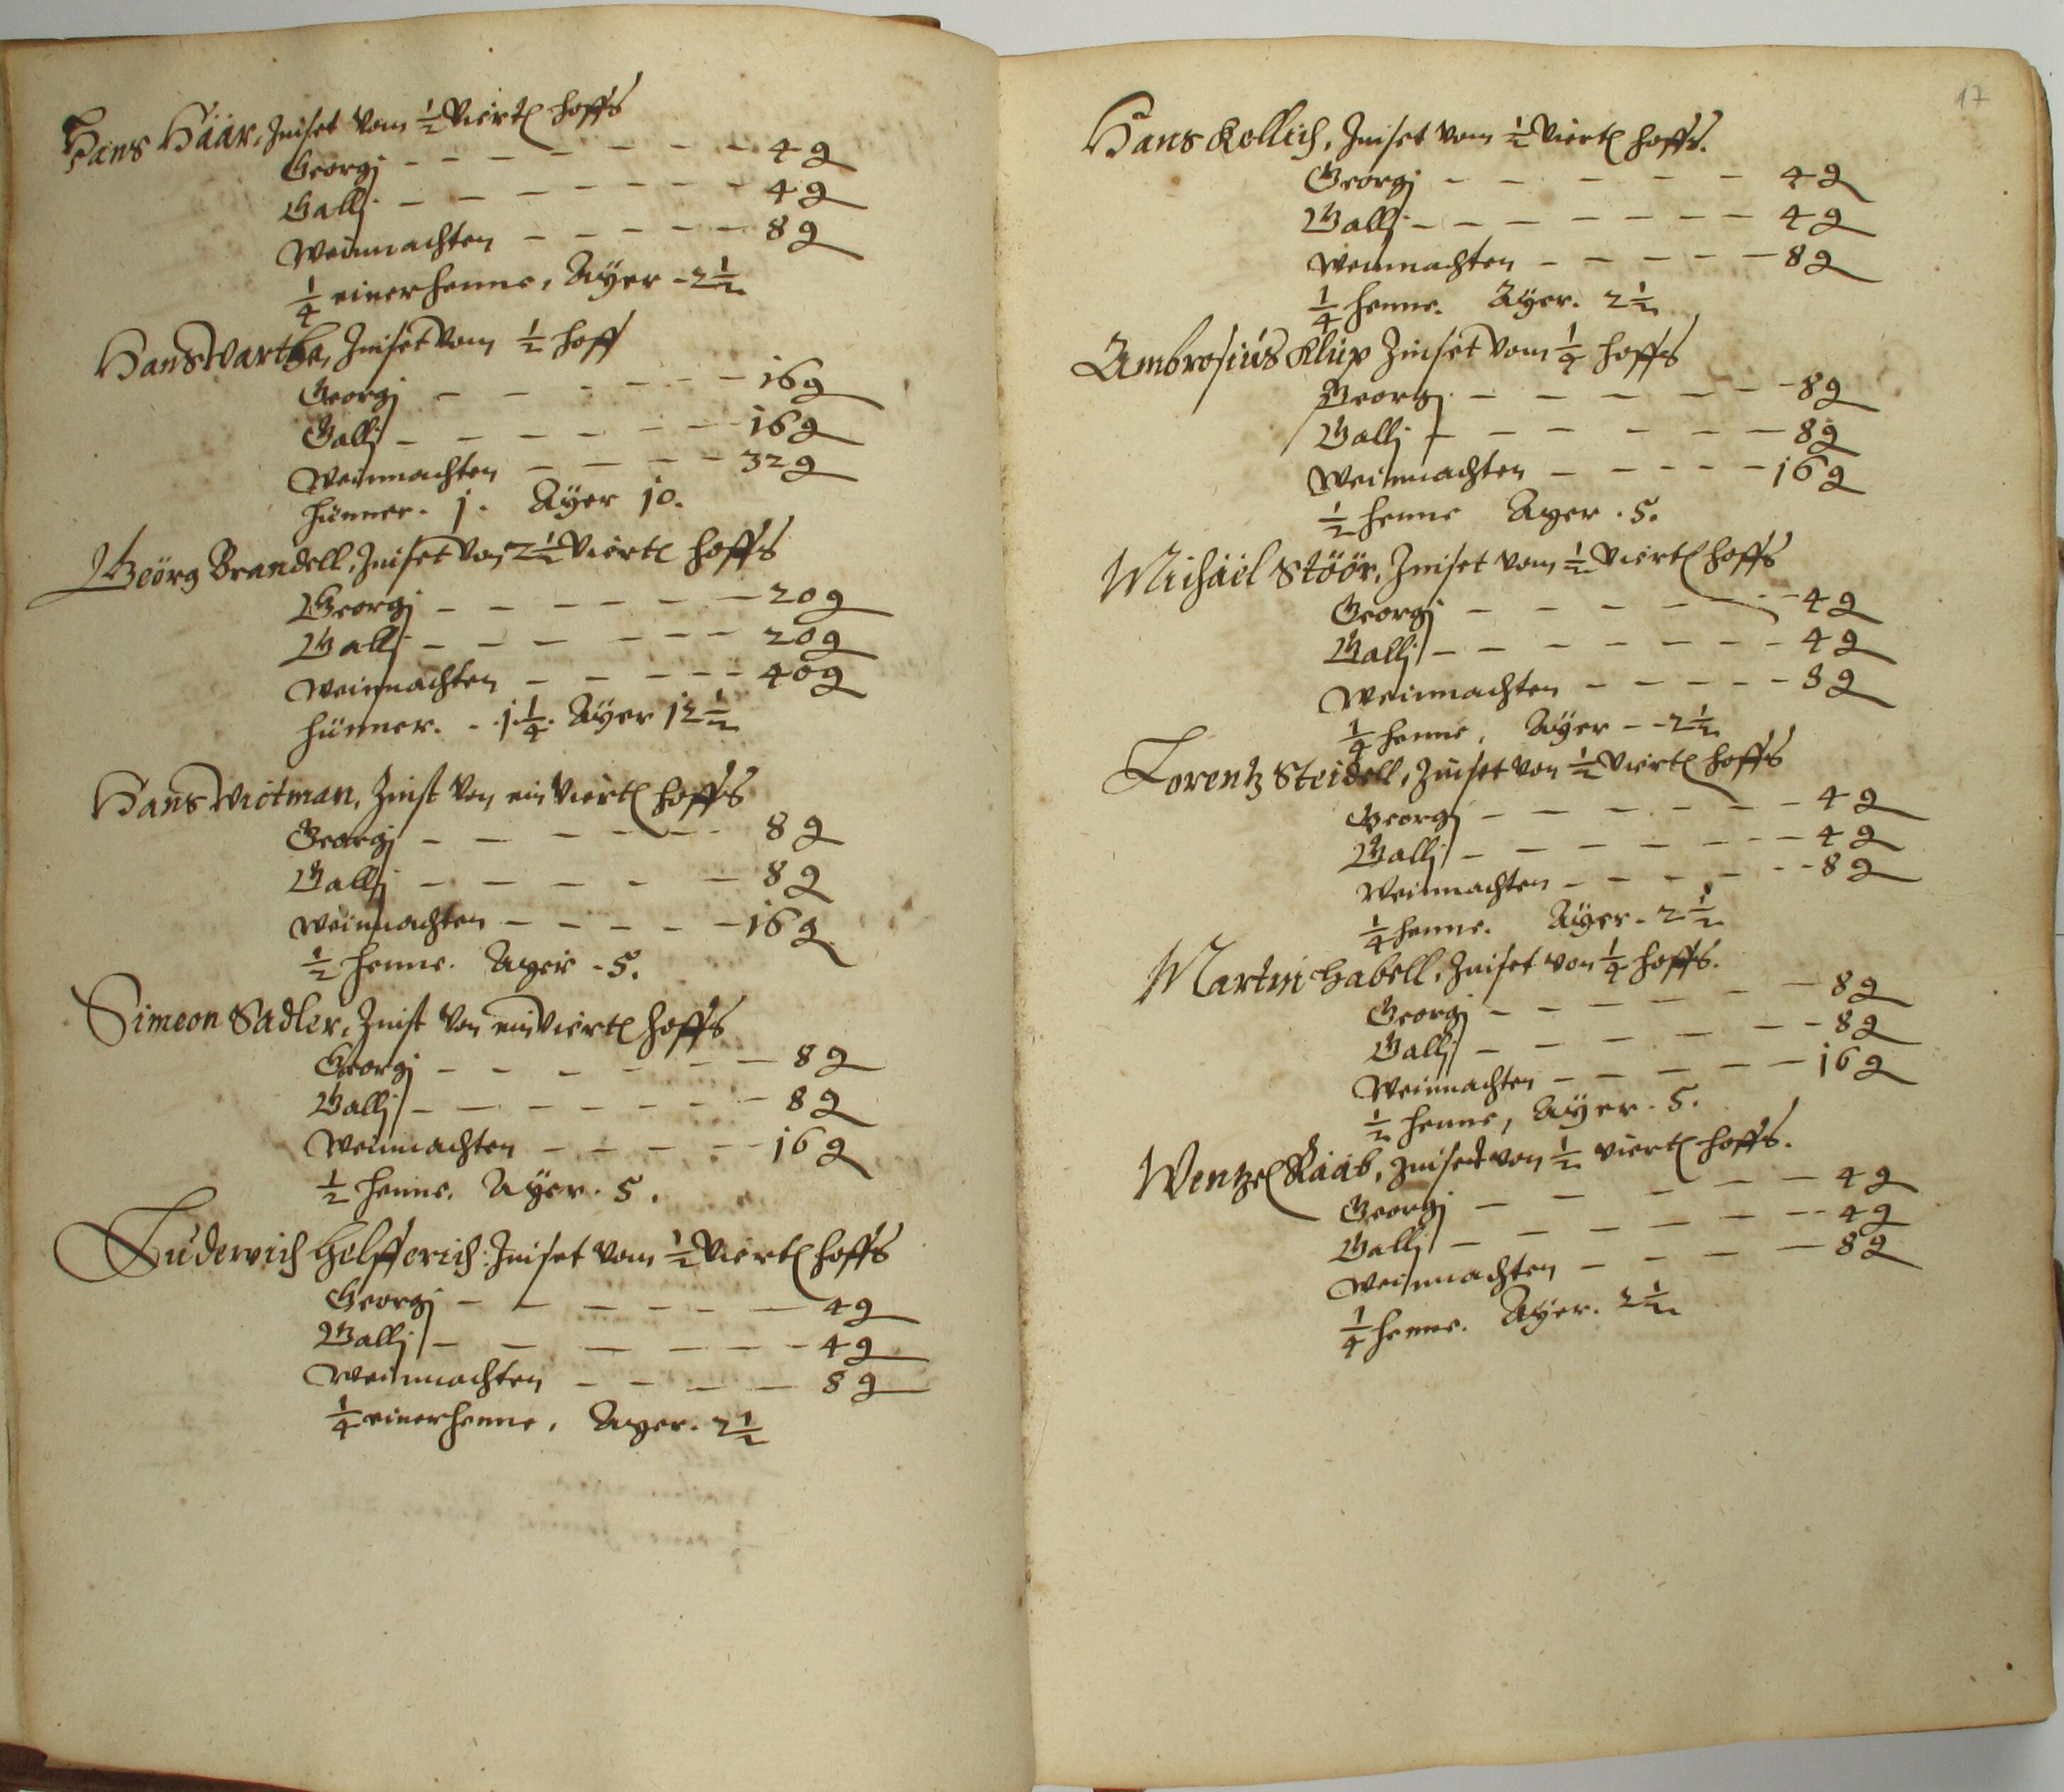 Hans Häar, Zinset vom ½ Viertl hoffs
Georgj - - - - - - - - 4 ₰
Gallj - - - - - - - - 4 ₰
Weinnachten - - - - - 8 ₰
¼ einer henne, Äyer - 2½
Hans Wartha, Zinset vom ½ hoff
Georgj - - - - - - 16 ₰
Gallj - - - - - - - 16 ₰
Weinnachten - - - - 32 ₰
hünner. 1. Äyer 10.
Geörg Brandell, Zinset von 2½ Viertl hoffs
Georgj - - - - - - 20 ₰
Gallj - - - - - - 20 ₰
Weinnachten - - - - - 40 ₰
hünner. - 1¼. Äyer 12½
Hans Wictman, Zinst von ein Viertl hoffs
Georgj - - - - - - 8 ₰
Gallj - - - - - 8 ₰
Weinnachten - - - - - 16 ₰
½ henne. Ayer - 5.
Simeon Sadler, Zinst von ein Viertl hoffs
Georgj - - - - - - 8 ₰
Gallj - - - - - - - 8 ₰
Weinnachten - - - - - 16 ₰
½ henne. Äyer. 5.
Ludewich Helfferich: Zinset vom ½ Viertl hoffs
Georgj - - - - - - 4 ₰
Gallj - - - - - - - 4 ₰
Weinnachten - - - - 8 ₰
¼ einer henne, Ayer. 2½
17
Hans Kollich, Zinset vom ½ Viertl hoffs.
Georgj - - - - - - 4 ₰
Gallj - - - - - - - - 4 ₰
Weinnachten - - - - - 8 ₰
¼ henne. Äyer. 2½
Ambrosius Klüx Zinset vom ¼ hoffs
Georgj - - - - - - - 8 ₰
Gallj - - - - - - 8 ₰
Weinnachten - - - - - 16 ₰
½ henne Ayer. 5.
Michäel Stöör, Zinset vom ½ Viertl hoffs
Georgj - - - - - - 4 ₰
Gallj - - - - - - - - 4 ₰
Weinnachten - - - - - 8 ₰
¼ henne, Äyer - - 2½
Lorentz Steidell, Zinset von ½ Viertl hoffs
Georgj - - - - - - - 4 ₰
Gallj - - - - - - - - 4 ₰
Weinnachten - - - - - - 8 ₰
¼ henne. Äyer. 2½
Martin Habell, Zinset von ¼ hoffs.
Georgj - - - - - - - 8 ₰
Gallj - - - - - - - 8 ₰
Weinnachten - - - - - - 16 ₰
½ henne, Äyer. 5.
Wentzel Raab, Zinset von ½ viertl hoffs.
Georgj - - - - - - 4 ₰
Gallj - - - - - - - 4 ₰
Weinnachten - - - - 8 ₰
¼ henne. Äyer. 2½